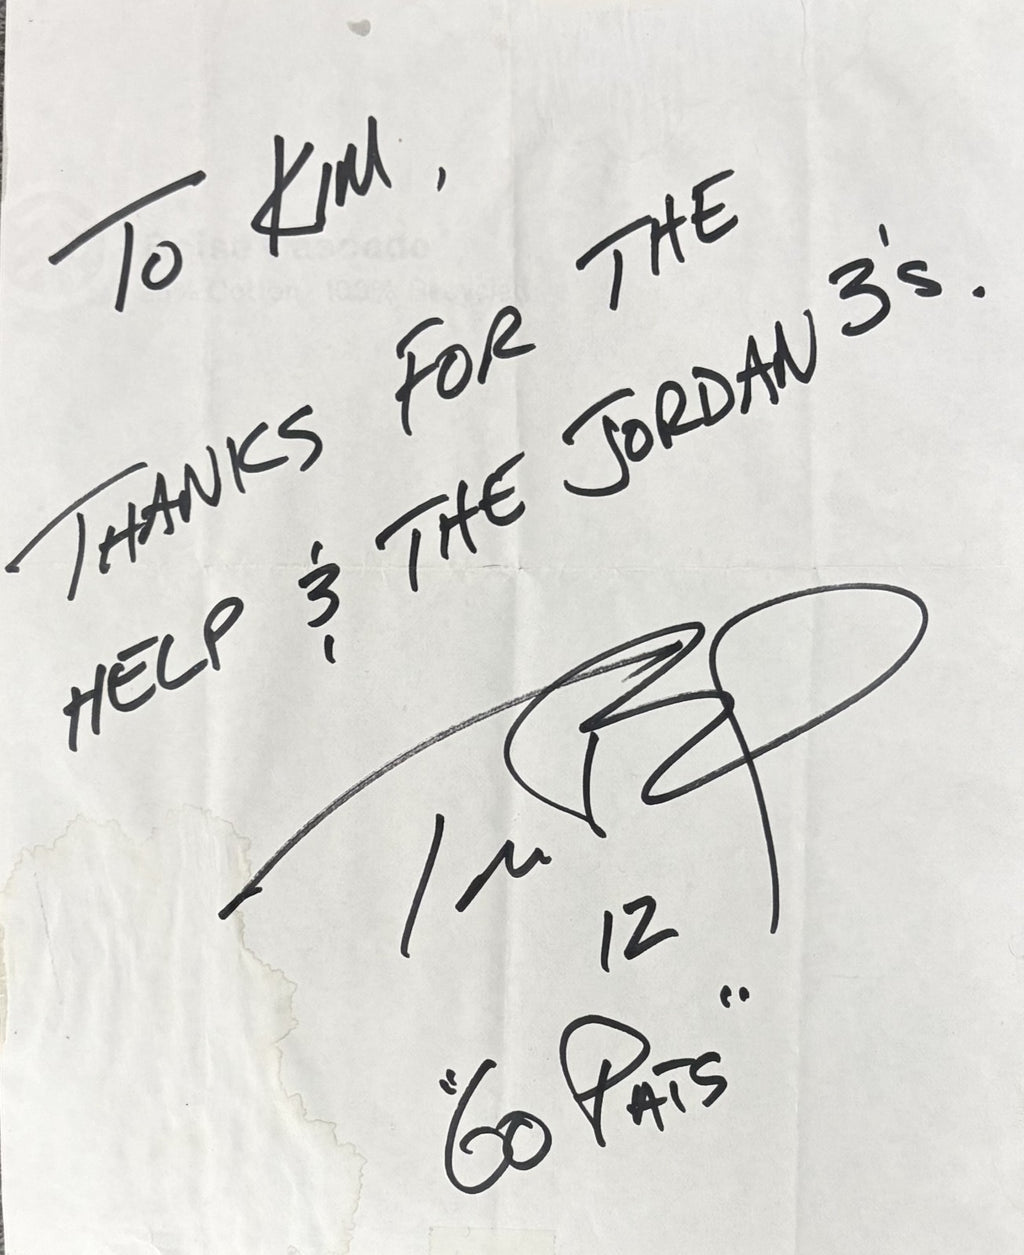 To KIM,
THANKS FOR THE
HELP & THE JORDAN 3's.
12
"GO PATS"